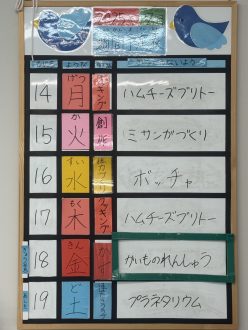 14 げつ 月 クッキング ハムチーズブリトー
15 か 火 創作 ミサンガづくり
16 すい 水 ボッチャ
17 もく 木 クッキング ハムチーズブリトー
18 きん 金 かいものれんしゅう
19 ど 土 プラネタリウム